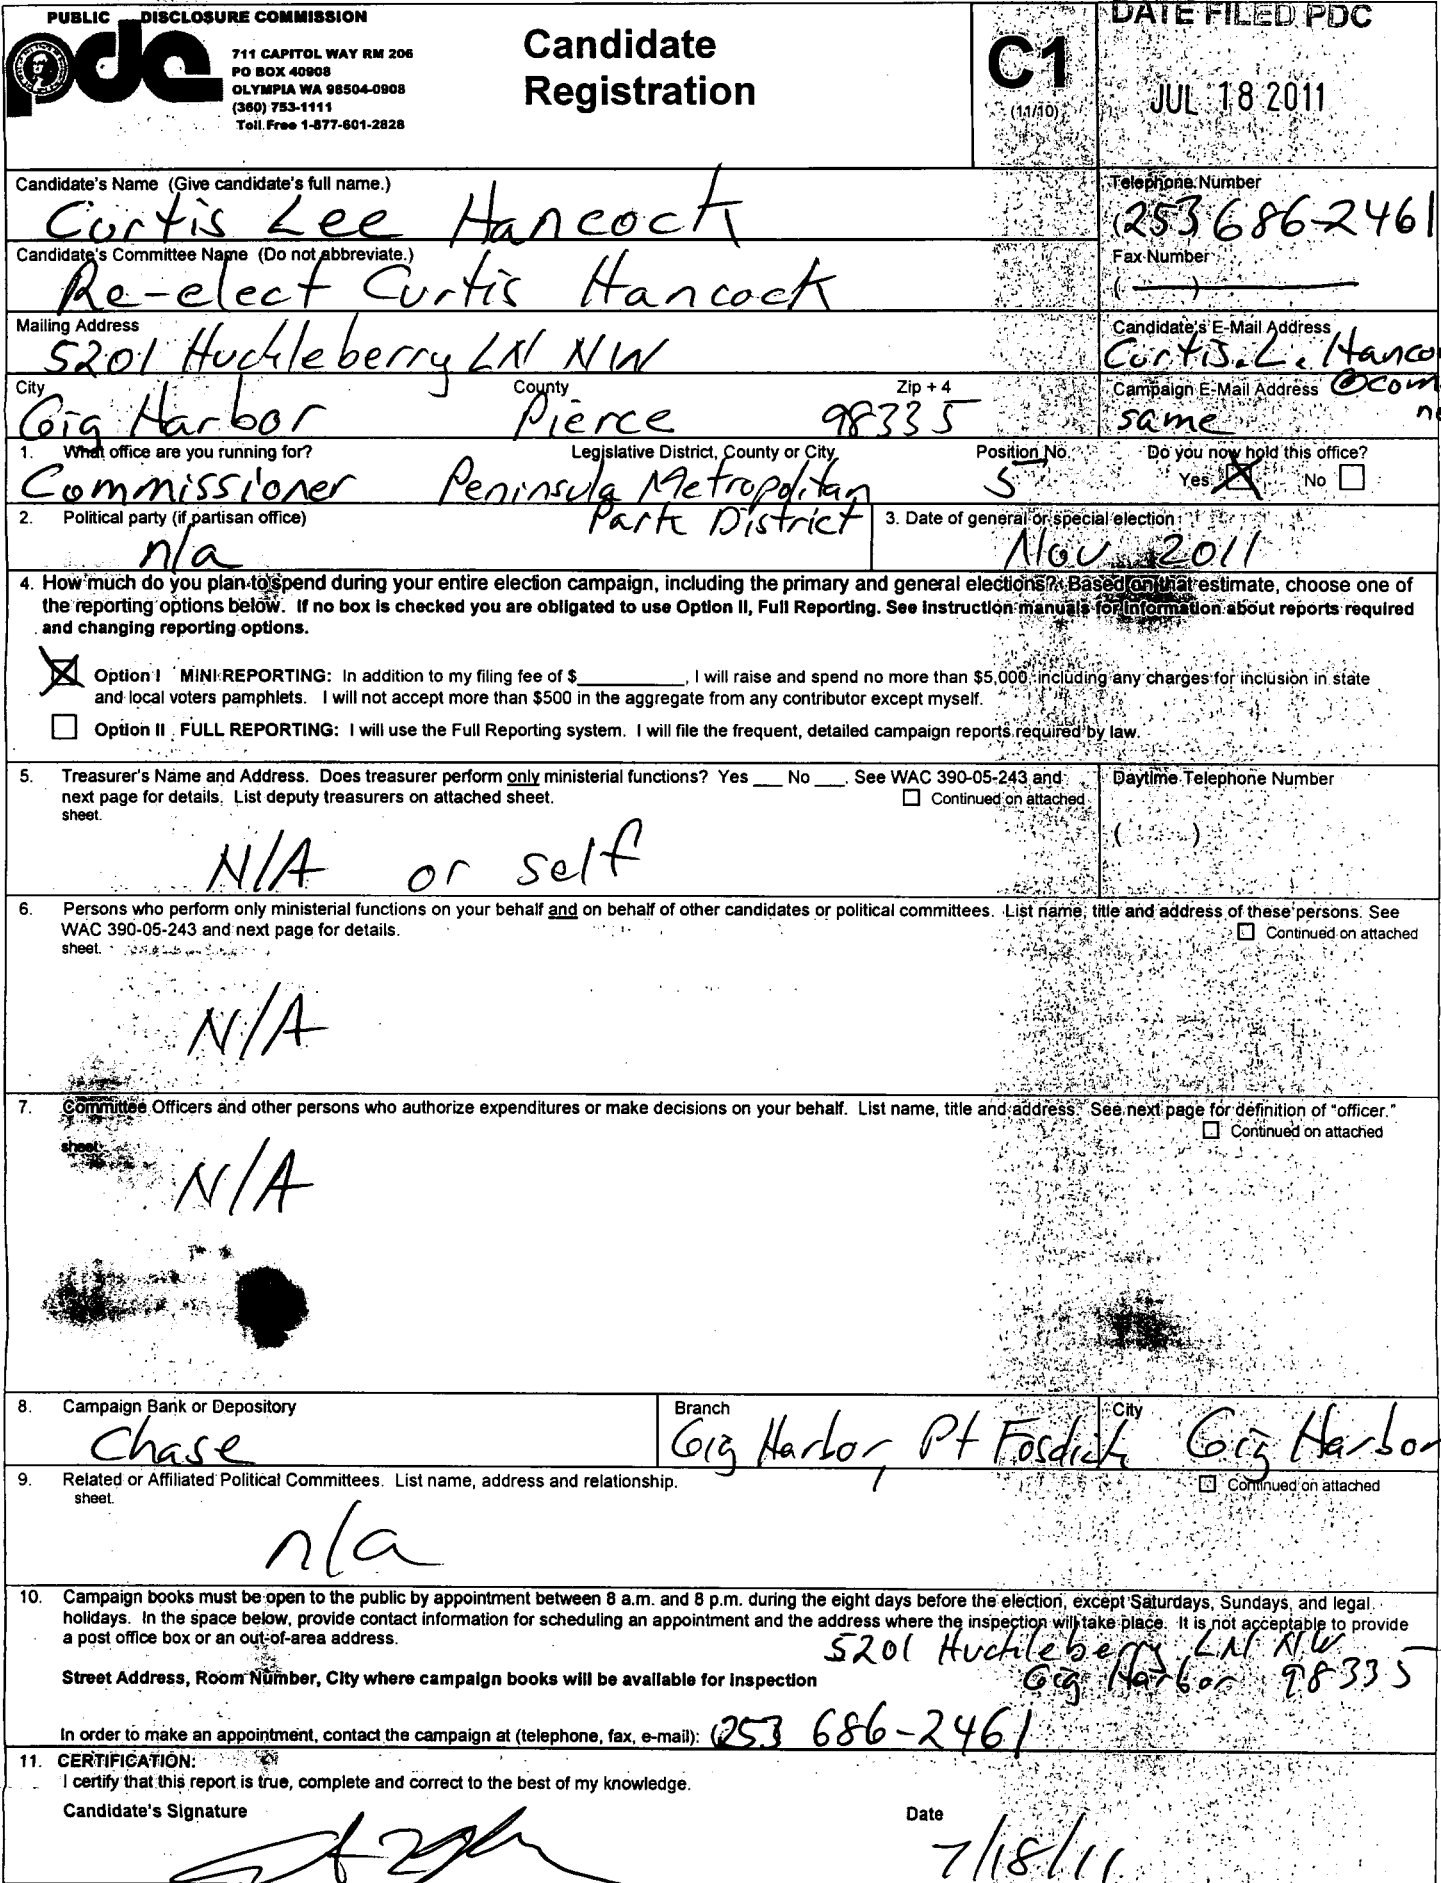 PUBLIC DISCLOSURE COMMISSION
pdc
711 CAPITOL WAY RM 206
PO BOX 40908
OLYMPIA WA 98504-0908
(360) 753-1111
Toll Free 1-877-601-2828
Candidate
Registration
C1
(11/10)
DATE FILED PDC
JUL 18 2011
Candidate's Name (Give candidate's full name.)
Curtis Lee Hancock
Telephone Number
(253 686-2461
Candidate's Committee Name (Do not abbreviate.)
Re-elect Curtis Hancock
Fax Number
( )
Mailing Address
5201 Huckleberry LN NW
Candidate's E-Mail Address
Curtis.L.Hanco
@com
City
Gig Harbor
County
Pierce
Zip + 4
98335
Campaign E-Mail Address
same
1. What office are you running for?
Commissioner
Legislative District, County or City
Peninsula Metropolitan
Park District
Position No.
5
Do you now hold this office?
Yes No
2. Political party (if partisan office)
n/a
3. Date of general or special election
Nov 2011
4. How much do you plan to spend during your entire election campaign, including the primary and general elections? Based on that estimate, choose one of
the reporting options below. If no box is checked you are obligated to use Option II, Full Reporting. See instruction manuals for information about reports required
and changing reporting options.
Option I MINI REPORTING: In addition to my filing fee of $________, I will raise and spend no more than $5,000, including any charges for inclusion in state
and local voters pamphlets. I will not accept more than $500 in the aggregate from any contributor except myself.
Option II FULL REPORTING: I will use the Full Reporting system. I will file the frequent, detailed campaign reports required by law.
5. Treasurer's Name and Address. Does treasurer perform only ministerial functions? Yes ___ No ___. See WAC 390-05-243 and
next page for details. List deputy treasurers on attached sheet. Continued on attached
sheet.
N/A or self
Daytime Telephone Number
( )
6. Persons who perform only ministerial functions on your behalf and on behalf of other candidates or political committees. List name, title and address of these persons. See
WAC 390-05-243 and next page for details. Continued on attached
sheet.
N/A
7. Committee Officers and other persons who authorize expenditures or make decisions on your behalf. List name, title and address. See next page for definition of "officer."
Continued on attached
sheet.
N/A
8. Campaign Bank or Depository
Chase
Branch
Gig Harbor, Pt Fosdick
City
Gig Harbor
9. Related or Affiliated Political Committees. List name, address and relationship. Continued on attached
sheet.
n/a
10. Campaign books must be open to the public by appointment between 8 a.m. and 8 p.m. during the eight days before the election, except Saturdays, Sundays, and legal
holidays. In the space below, provide contact information for scheduling an appointment and the address where the inspection will take place. It is not acceptable to provide
a post office box or an out-of-area address.
5201 Huckleberry LN NW
Street Address, Room Number, City where campaign books will be available for inspection
Gig Harbor 98335
In order to make an appointment, contact the campaign at (telephone, fax, e-mail): (253 686-2461
11. CERTIFICATION:
I certify that this report is true, complete and correct to the best of my knowledge.
Candidate's Signature
Date
7/18/11